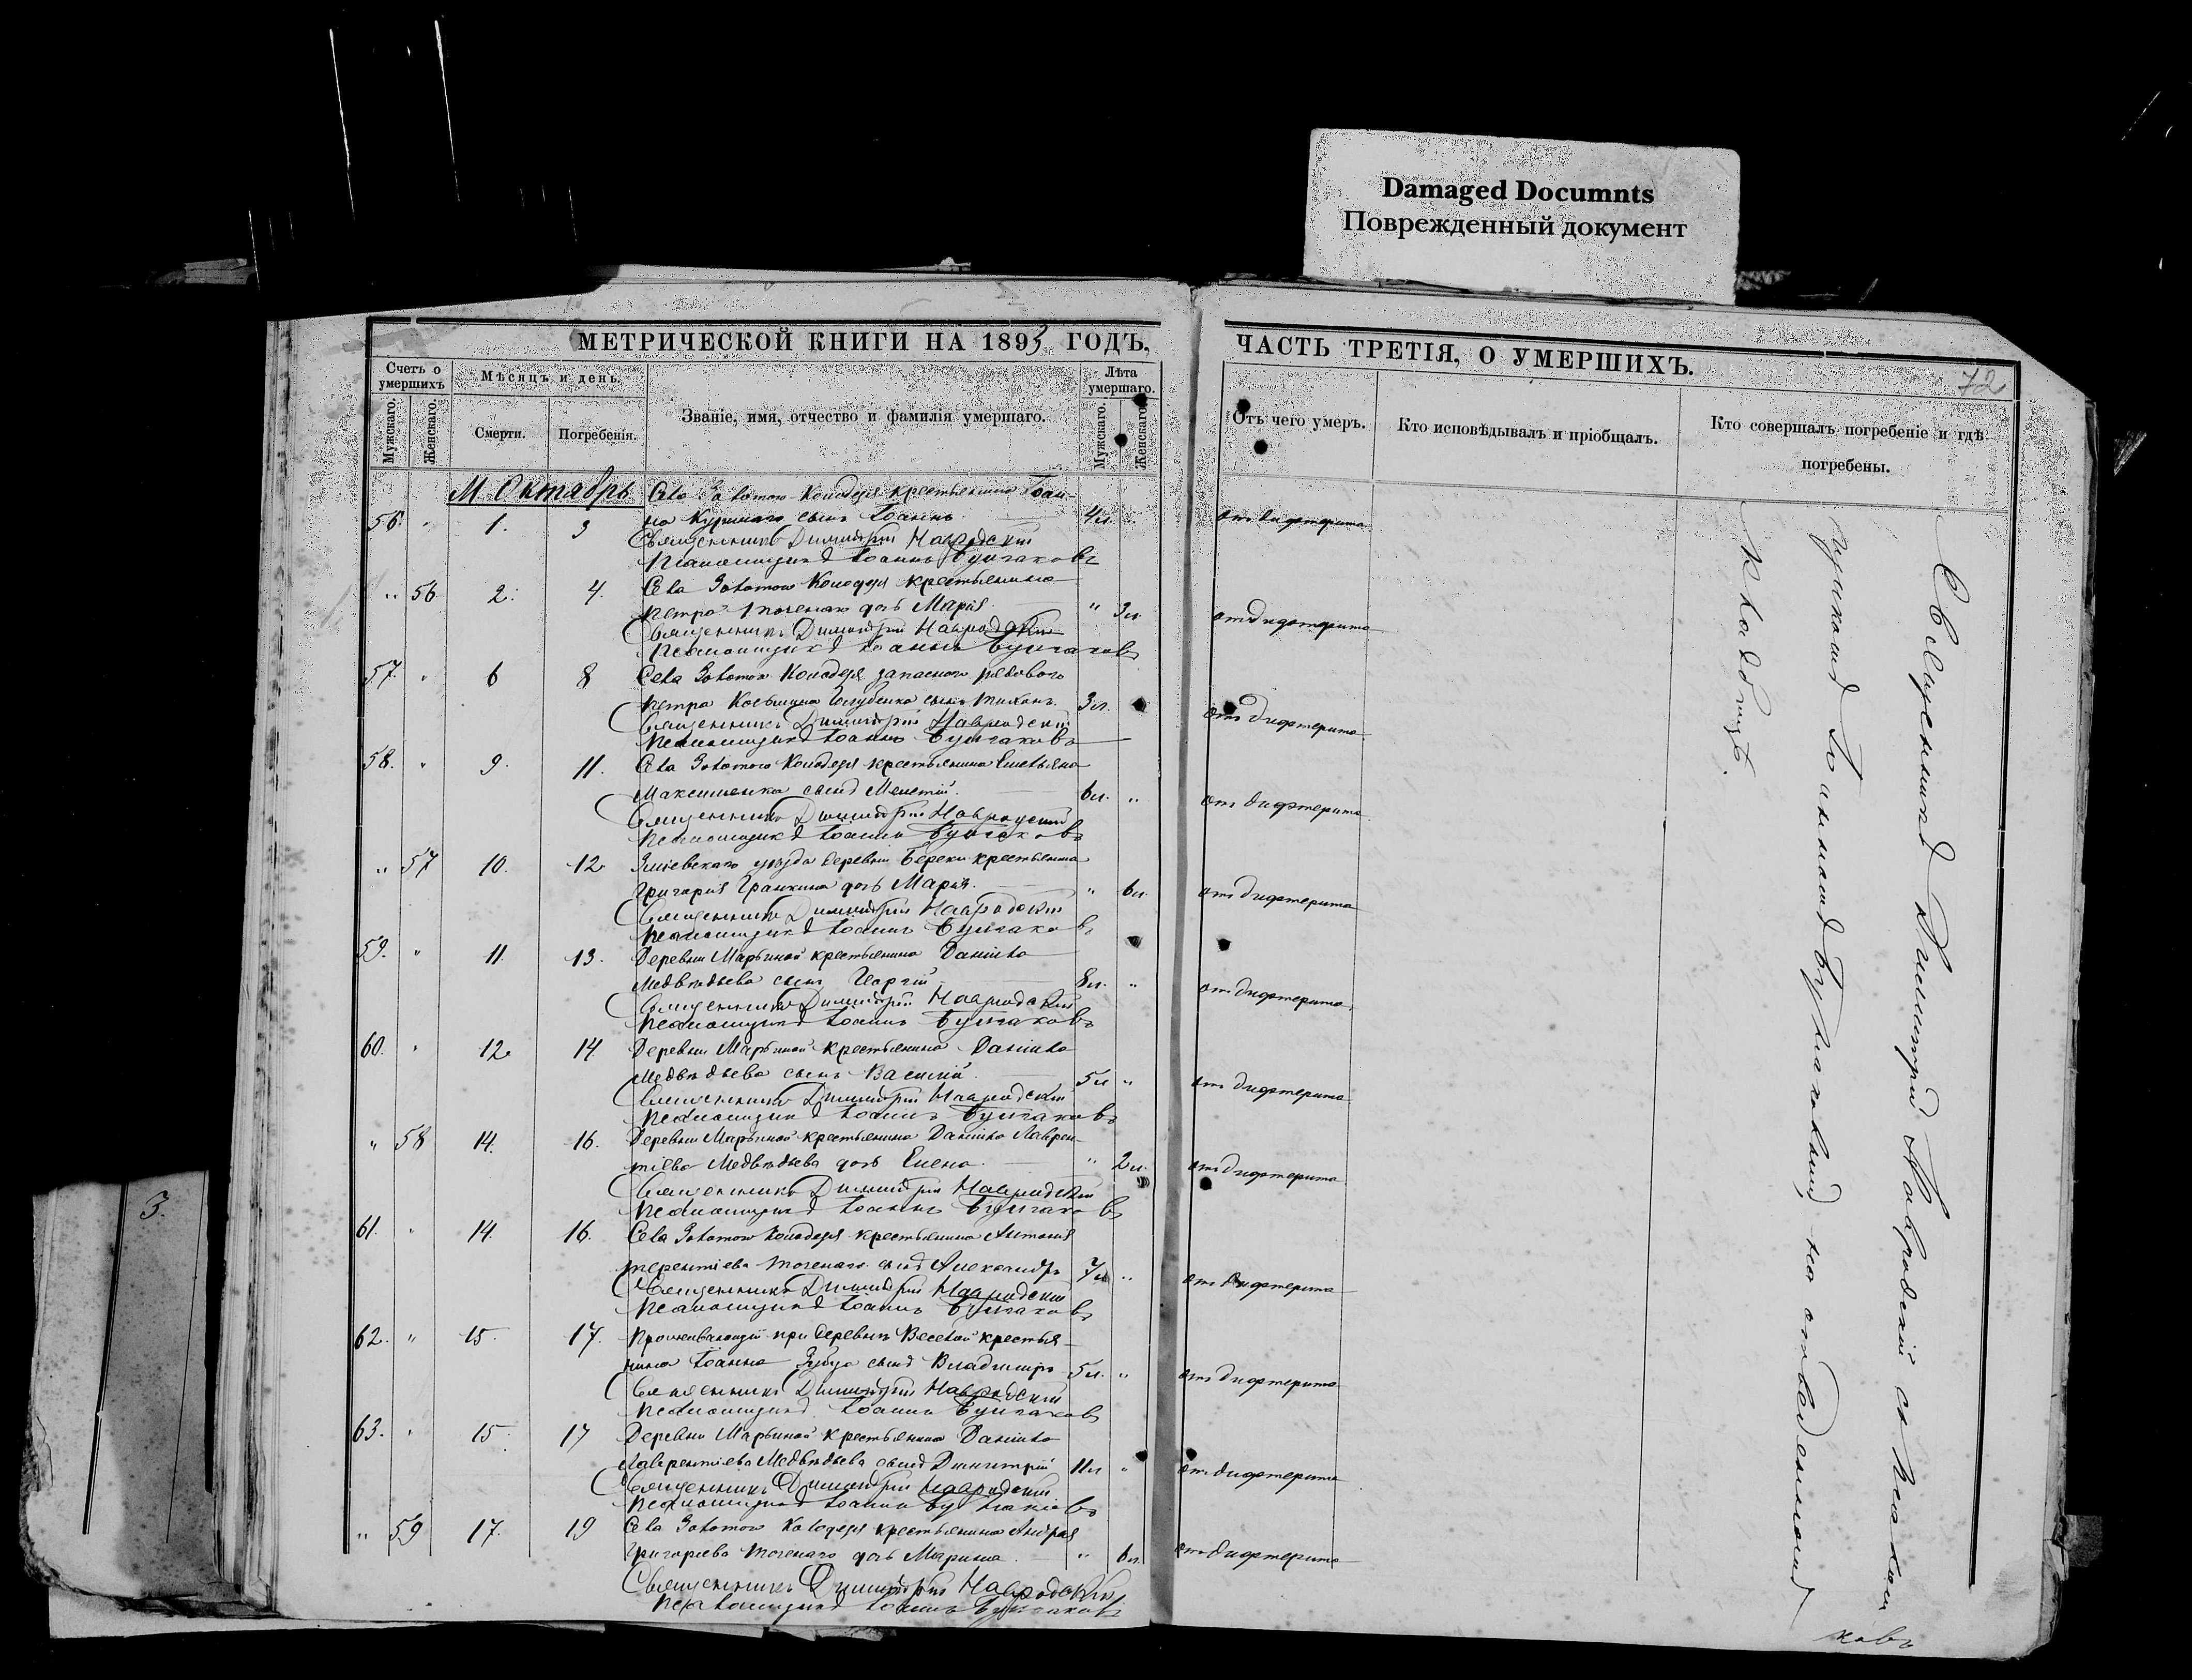 Damaged Documnts
Поврежденный документ
МЕТРИЧЕСКОЙ КНИГИ НА 1893 ГОДЪ,
ЧАСТЬ ТРЕТІЯ, О УМЕРШИХЪ.
72
Счетъ о умершихъ
Мужскаго.
Женскаго.
Мѣсяцъ и день.
Смерти.
Погребенія.
Званіе, имя, отчество и фамилія умершаго.
Лѣта умершаго.
Мужскаго.
Женскаго.
Отъ чего умеръ.
Кто исповѣдывалъ и пріобщалъ.
Кто совершалъ погребеніе и гдѣ погребены.
М. Октябрь
Села Золотого Колодезя крестьянина Іоан-
56. " 1. 3 на сынъ Іоаннъ 4л. " отъ дифтерита
Священникъ Димитрій Навродскій
Псаломщикъ Іоаннъ Булгаковъ
" 56 2. 4. Села Золотого Колодезя крестьянина
Петра дочь Марія. " 3л. отъ дифтерита
Священникъ Димитрій Навродскій
Псаломщикъ Іоаннъ Булгаковъ
57. " 6 8 Села Золотого Колодезя запасного рядового
Петра сынъ Тихонъ. 3л. отъ дифтерита
Священникъ Димитрій Навродскій
Псаломщикъ Іоаннъ Булгаковъ
58. " 9. 11. Села Золотого Колодезя крестьянина Емельяна
Максименка сынъ Мелетій. 6л. " отъ дифтерита
Священникъ Димитрій Навродскій
Псаломщикъ Іоаннъ Булгаковъ
" 57 10. 12. Зміевскаго уѣзда деревни Береки крестьянина
Григорія дочь Марія. " 6л. отъ дифтерита
Священникъ Димитрій Навродскій
Псаломщикъ Іоаннъ Булгаковъ
59. " 11. 13. Деревни Марьиной крестьянина Даніила
Медвѣдьева сынъ Георгій 8л. " отъ дифтерита
Священникъ Димитрій Навродскій
Псаломщикъ Іоаннъ Булгаковъ
60. " 12. 14. Деревни Марьиной крестьянина Даніила
Медвѣдьева сынъ Василій 5л " отъ дифтерита
Священникъ Димитрій Навродскій
Псаломщикъ Іоаннъ Булгаковъ
" 58 14. 16. Деревни Марьиной крестьянина Даніила Лаврен-
тіева Медвѣдьева дочь Елена " 2л. отъ дифтерита
Священникъ Димитрій Навродскій
Псаломщикъ Іоаннъ Булгаковъ
61. " 14. 16. Села Золотого Колодезя крестьянина Антонія
Терентіева сынъ Александръ 7л " отъ дифтерита
Священникъ Димитрій Навродскій
Псаломщикъ Іоаннъ Булгаковъ
62. " 15. 17. Проживающій при деревнѣ Веселой крестья-
нина Іоанна сынъ Владимиръ 5л. " отъ дифтерита
Священникъ Димитрій Навродскій
Псаломщикъ Іоаннъ Булгаковъ
63. " 15. 17 Деревни Марьиной крестьянина Даніила
Лаврентіева Медвѣдьева сынъ Димитрій 11л " отъ дифтерита
Священникъ Димитрій Навродскій
Псаломщикъ Іоаннъ Булгаковъ
" 59 17. 19 Села Золотого Колодезя крестьянина Андрея
Григорьева дочь Марина. " 6л. отъ дифтерита
Священникъ Димитрій Навродскій
Псаломщикъ Іоаннъ Булгаковъ
Священникъ Димитрій Навродскій съ Псаломщикомъ Іоанномъ Булгаковымъ на отведенномъ
кладбищѣ.
3.